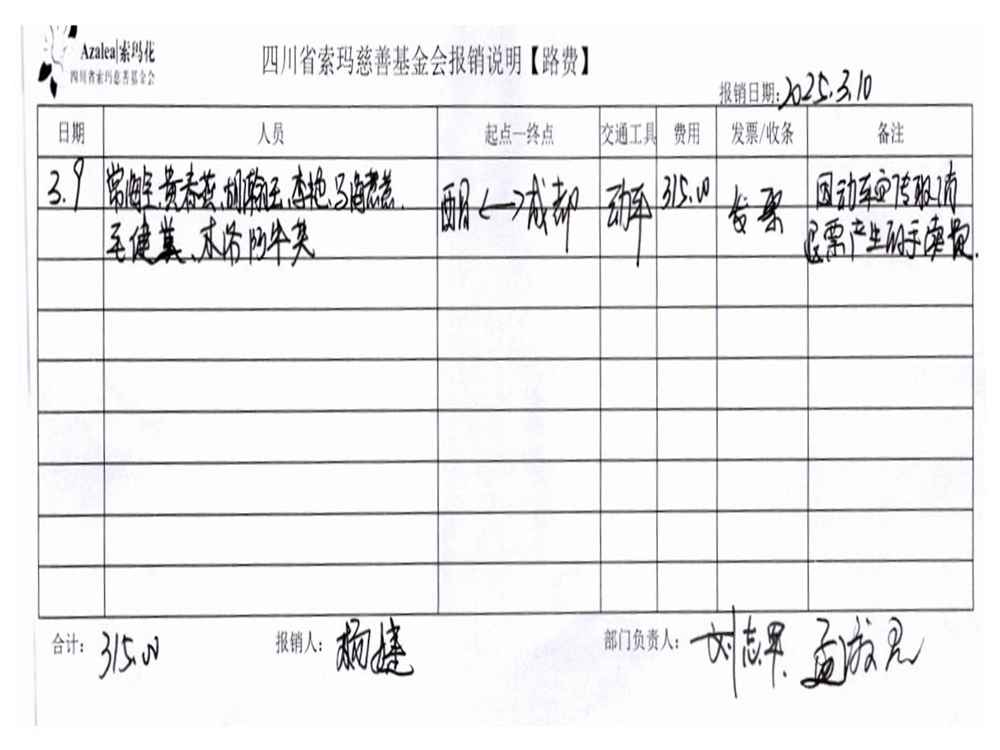 Azalea|索玛花
四川省索玛慈善基金会
四川省索玛慈善基金会报销说明【路费】
报销日期:2025.3.10
日期 人员 起点—终点 交通工具 费用 发票/收条 备注
3.9 常海宝、黄春燕、胡翰玉、李艳、马海 西昌<—>成都 动车 315.00 发票 因动车宣传取消
毛健英、木洛阿牛英 退票产生的手续费.
合计: 315.00 报销人: 杨婕 部门负责人: 刘志军.